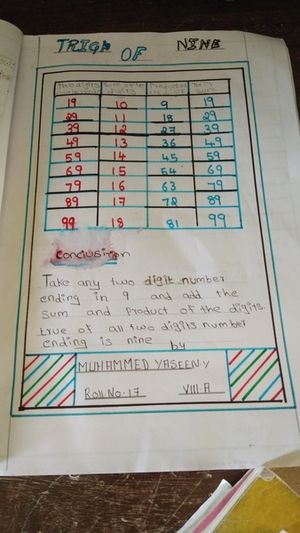 TRICK OF NINE
Two digits Sum of the Product Their
digits sum
19 10 9 19
29 11 18 29
39 12 27 39
49 13 36 49
59 14 45 59
69 15 54 69
79 16 63 79
89 17 72 89
99 18 81 99
Conclusition
Take any two digit number
ending in 9 and add the
sum and product of the digits.
true of all two digits number
ending is nine by
MUHAMMED YASEEN.Y
Roll No-17 VIII-A